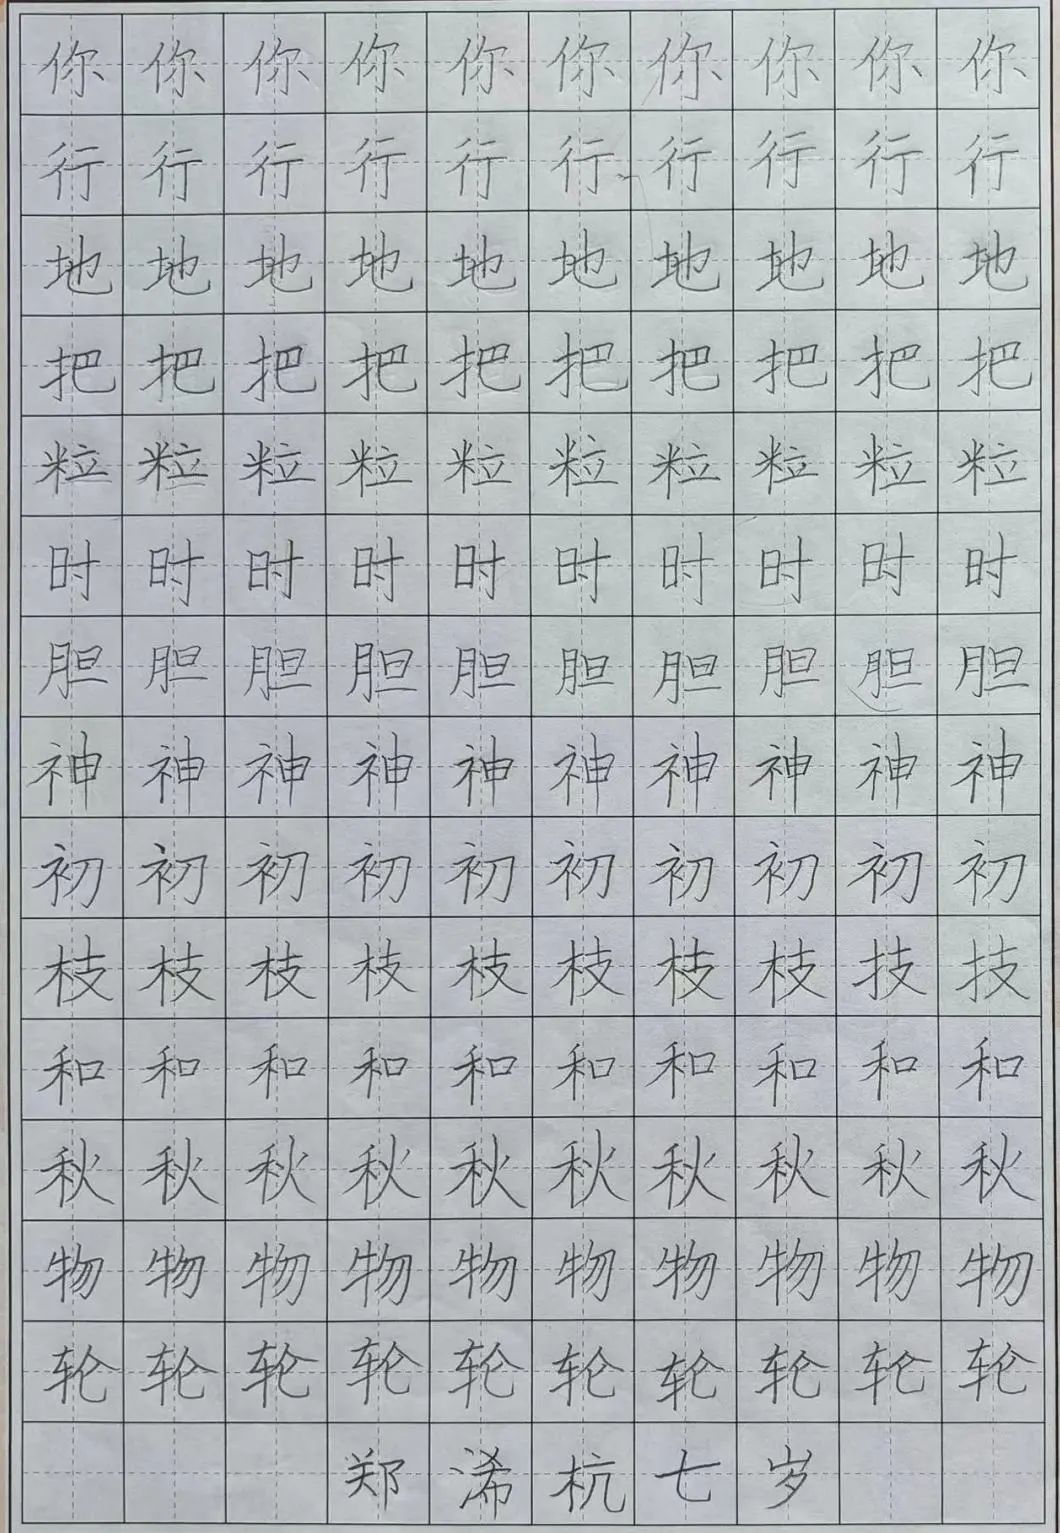 你你你你你你你你你你
行行行行行行行行行行
地地地地地地地地地地
把把把把把把把把把把
粒粒粒粒粒粒粒粒粒粒
时时时时时时时时时时
胆胆胆胆胆胆胆胆胆胆
神神神神神神神神神神
初初初初初初初初初初
枝枝枝枝枝枝枝枝技技
和和和和和和和和和和
秋秋秋秋秋秋秋秋秋秋
物物物物物物物物物物
轮轮轮轮轮轮轮轮轮轮
郑浠杭七岁